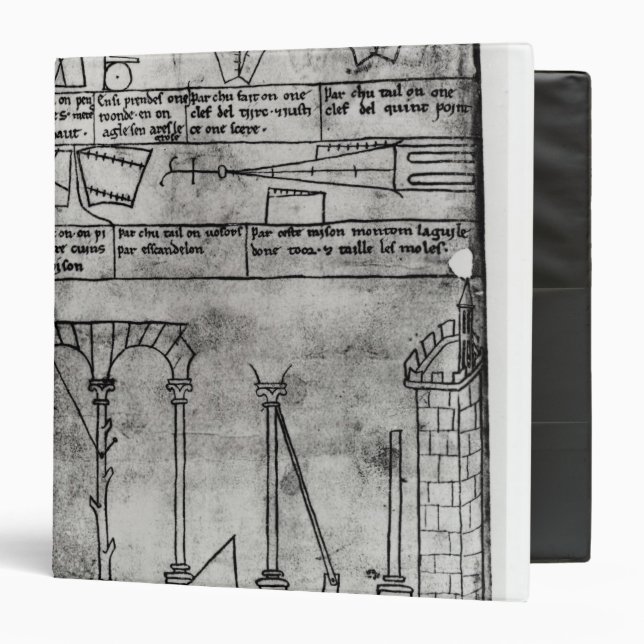 on pen
s mete
haut.
Ensi prendes one
roonde en on
agle sen ares le
grose
Par chu fait on one
clef del tirc & justi
ce one scere.
par chu tail on one
clef del quint point
on ou pi
re cuins
ison
par chu tail on vosors
par esscandelon
par ceste raison montom laguile
done toor & taille les moles.